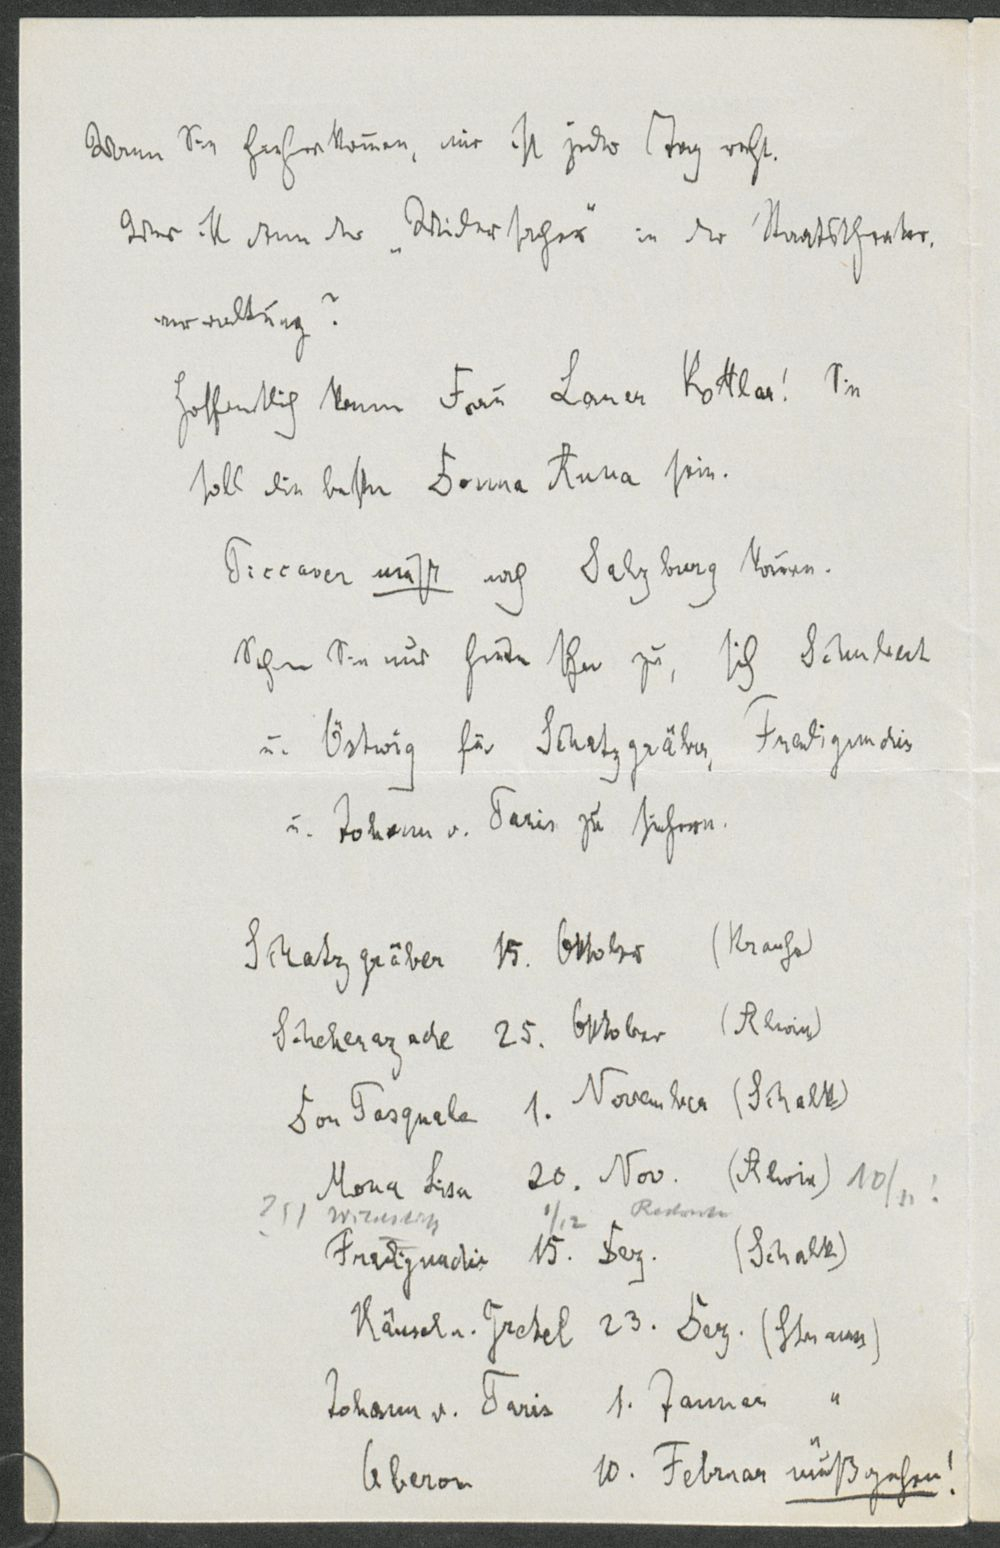 Wann Sie hieherkom̅en, mir ist jeder Tag recht.
Wer ist denn der „Widersacher“ in der Staatstheater-
verwaltung?
Hoffentlich kann Frau Laner Kottlar! Sie
soll die beste Donna Anna sein.
Piccaver muß nach Salzburg kom̅en.
Sehen Sie nur zu, sich Schubert
u. Östvig für Schatzgräber, Fredigundis
u. Johann v. Paris zu sichern.
Schatzgräber 15. Oktober (Krauss)
Scheherazade 25. Oktober (Alwin)
Don Pasquale 1. November (Schalk)
Mona Lisa 20. Nov. (Alwin) 10/11!
1/12
Fredigundis 15. Dez. (Schalk)
Hänsel u. Gretel 23. Dez. (Strauss)
Johann v. Paris 1. Januar "
Oberon 10. Februar muß gehen!